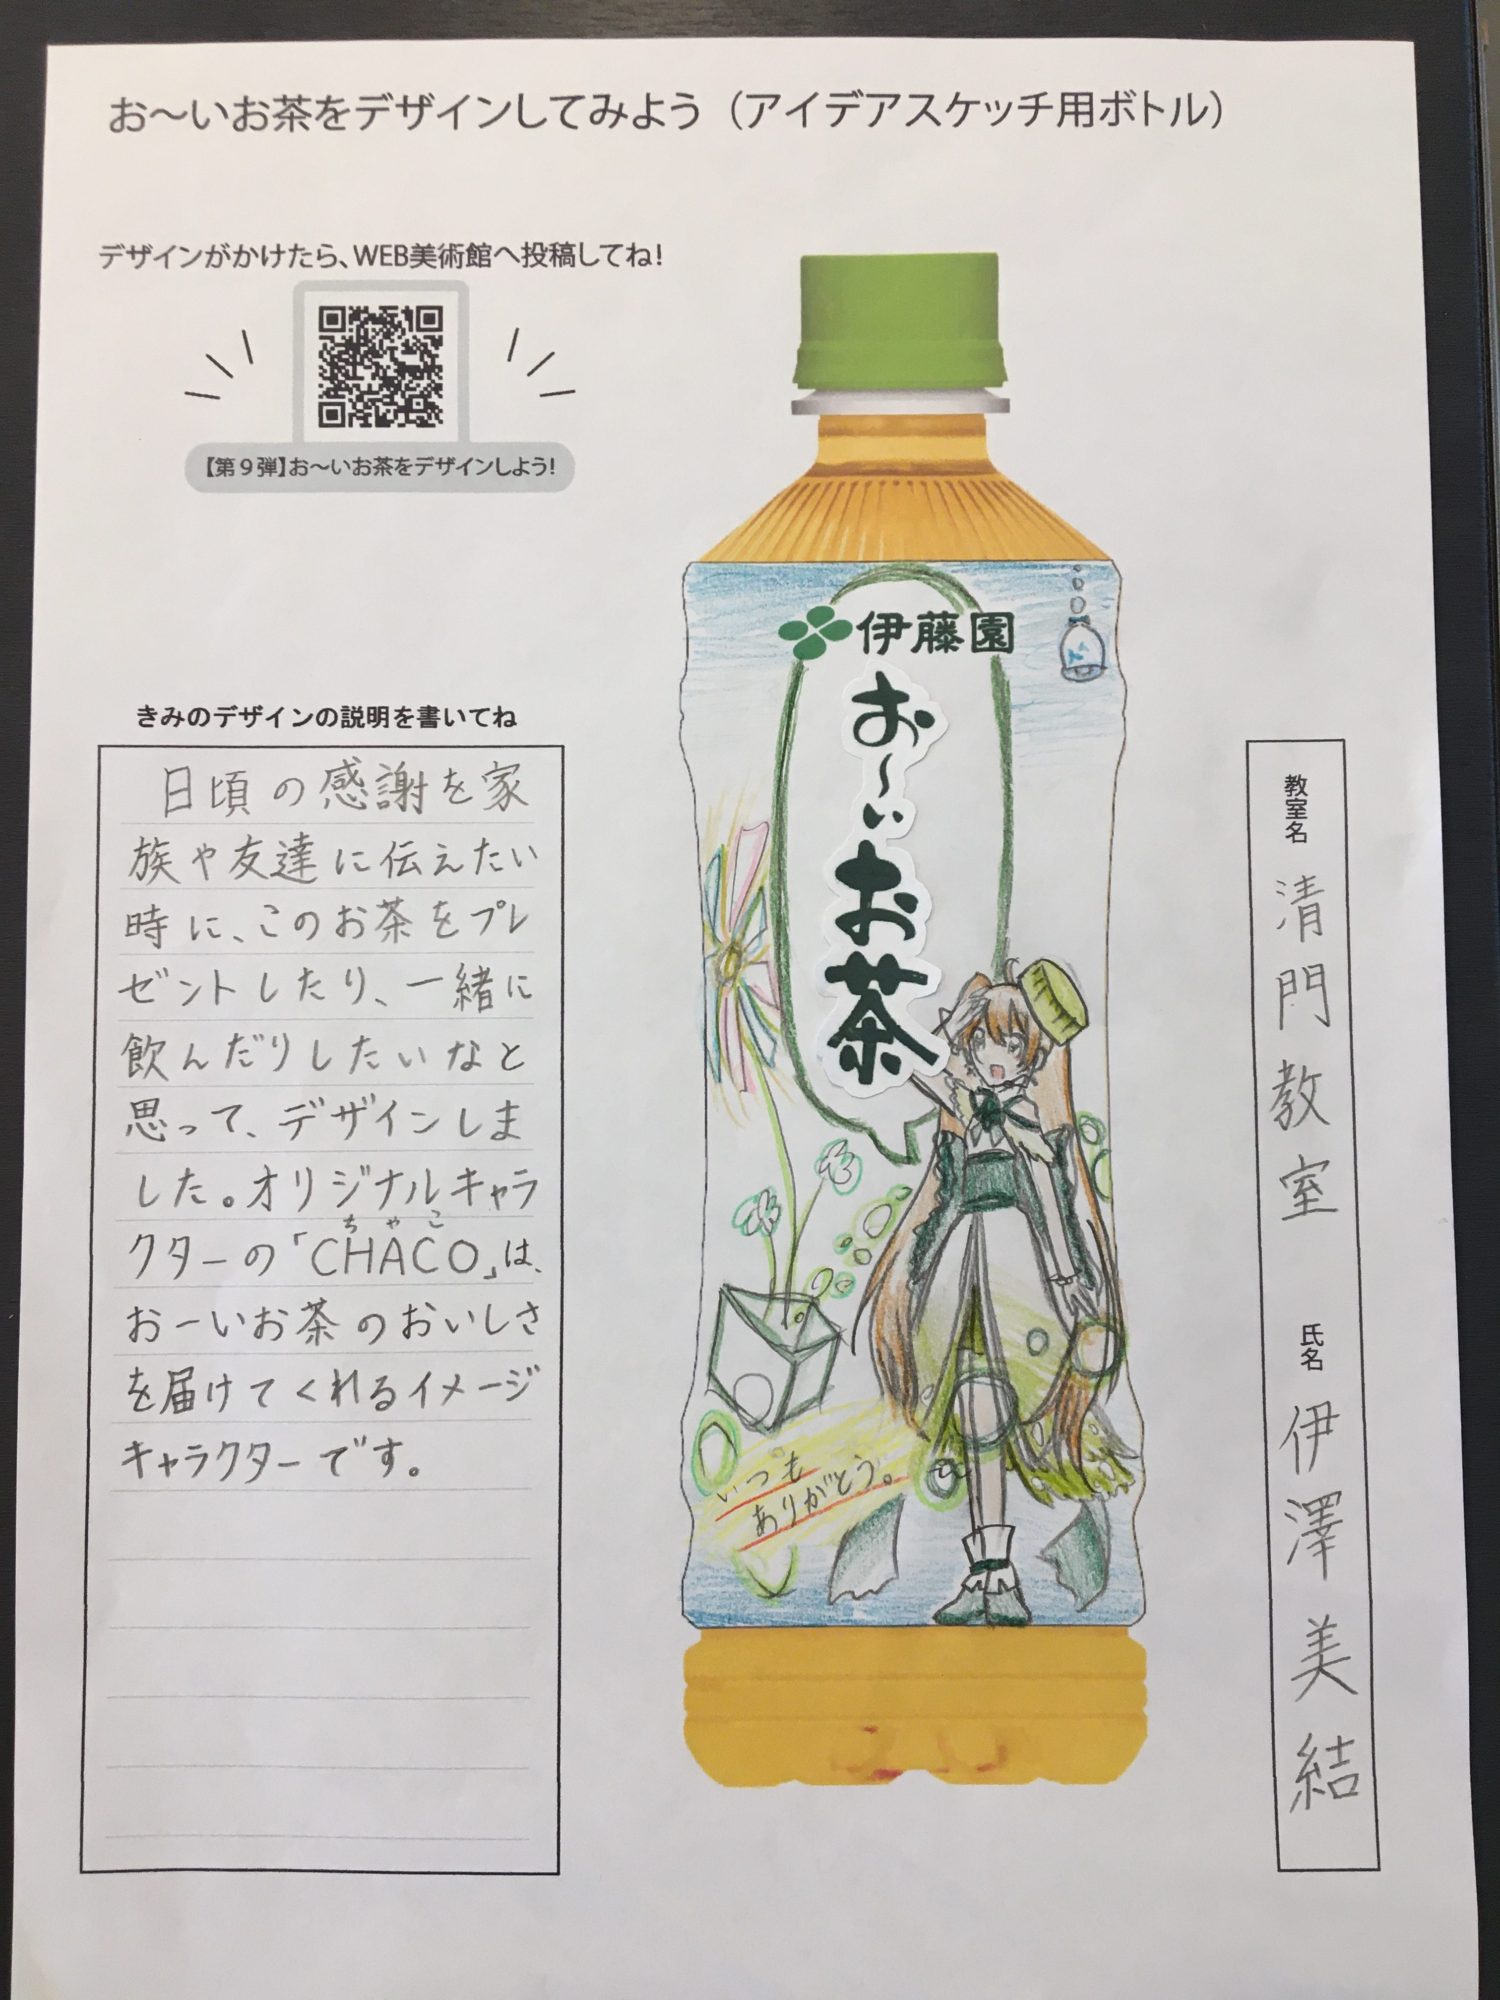 お〜いお茶をデザインしてみよう（アイデアスケッチ用ボトル）
デザインがかけたら、WEB美術館へ投稿してね!
【第９弾】お〜いお茶をデザインしよう!
きみのデザインの説明を書いてね
日頃の感謝を家
族や友達に伝えたい
時に、このお茶をプレ
ゼントしたり、一緒に
飲んだりしたいなと
思って、デザインしま
した。オリジナルキャラ
ちゃこ
クターの「CHACO」は、
おーいお茶のおいしさ
を届けてくれるイメージ
キャラクターです。
伊藤園
お〜いお茶
いつも
ありがとう。
教室名 清門教室
氏名 伊澤美結